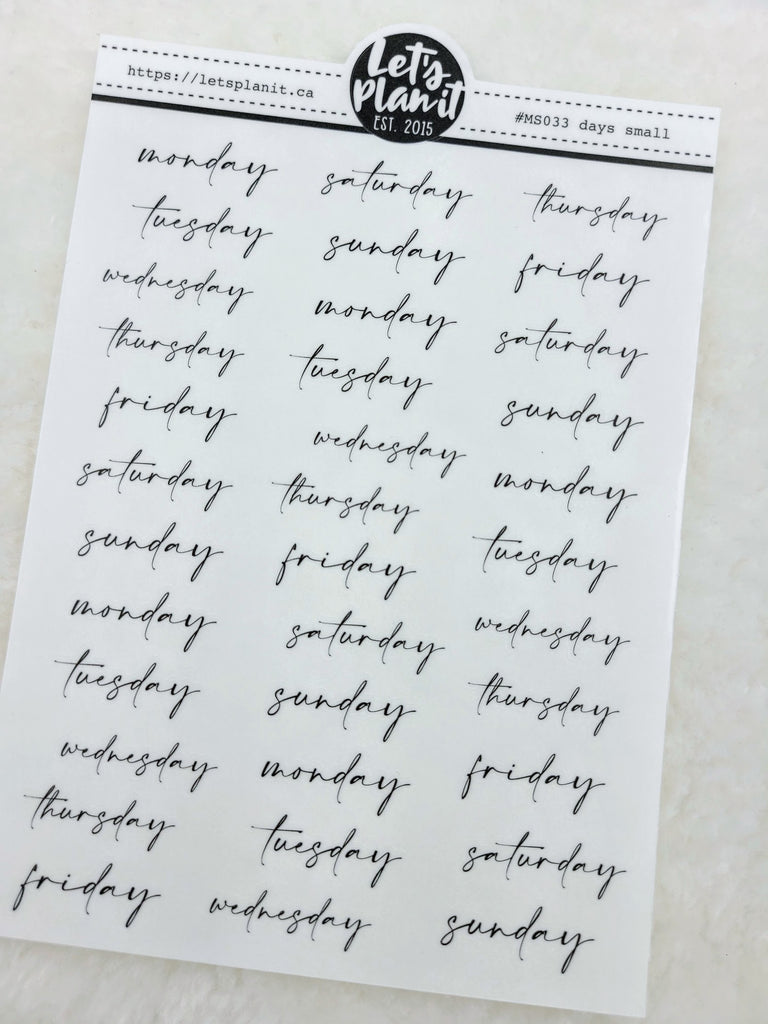 https://letsplanit.ca
Let's
Plan it
EST. 2015
#MS033 days small
monday
tuesday
wednesday
thursday
friday
saturday
sunday
monday
tuesday
wednesday
thursday
friday
saturday
sunday
monday
tuesday
wednesday
thursday
friday
saturday
sunday
monday
tuesday
wednesday
thursday
friday
saturday
sunday
monday
tuesday
wednesday
thursday
friday
saturday
sunday